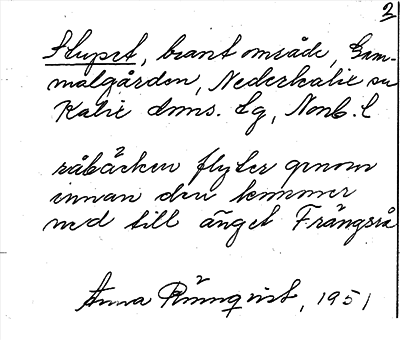 2
Stupet, brant område, Gam-
malgården, Nederkalix sn
Kalix doms. lg, Norrb. l
råbäcken flyter genom
innan den kommer
ned till änget Frängsrå
Anna Rönnqvist, 1951